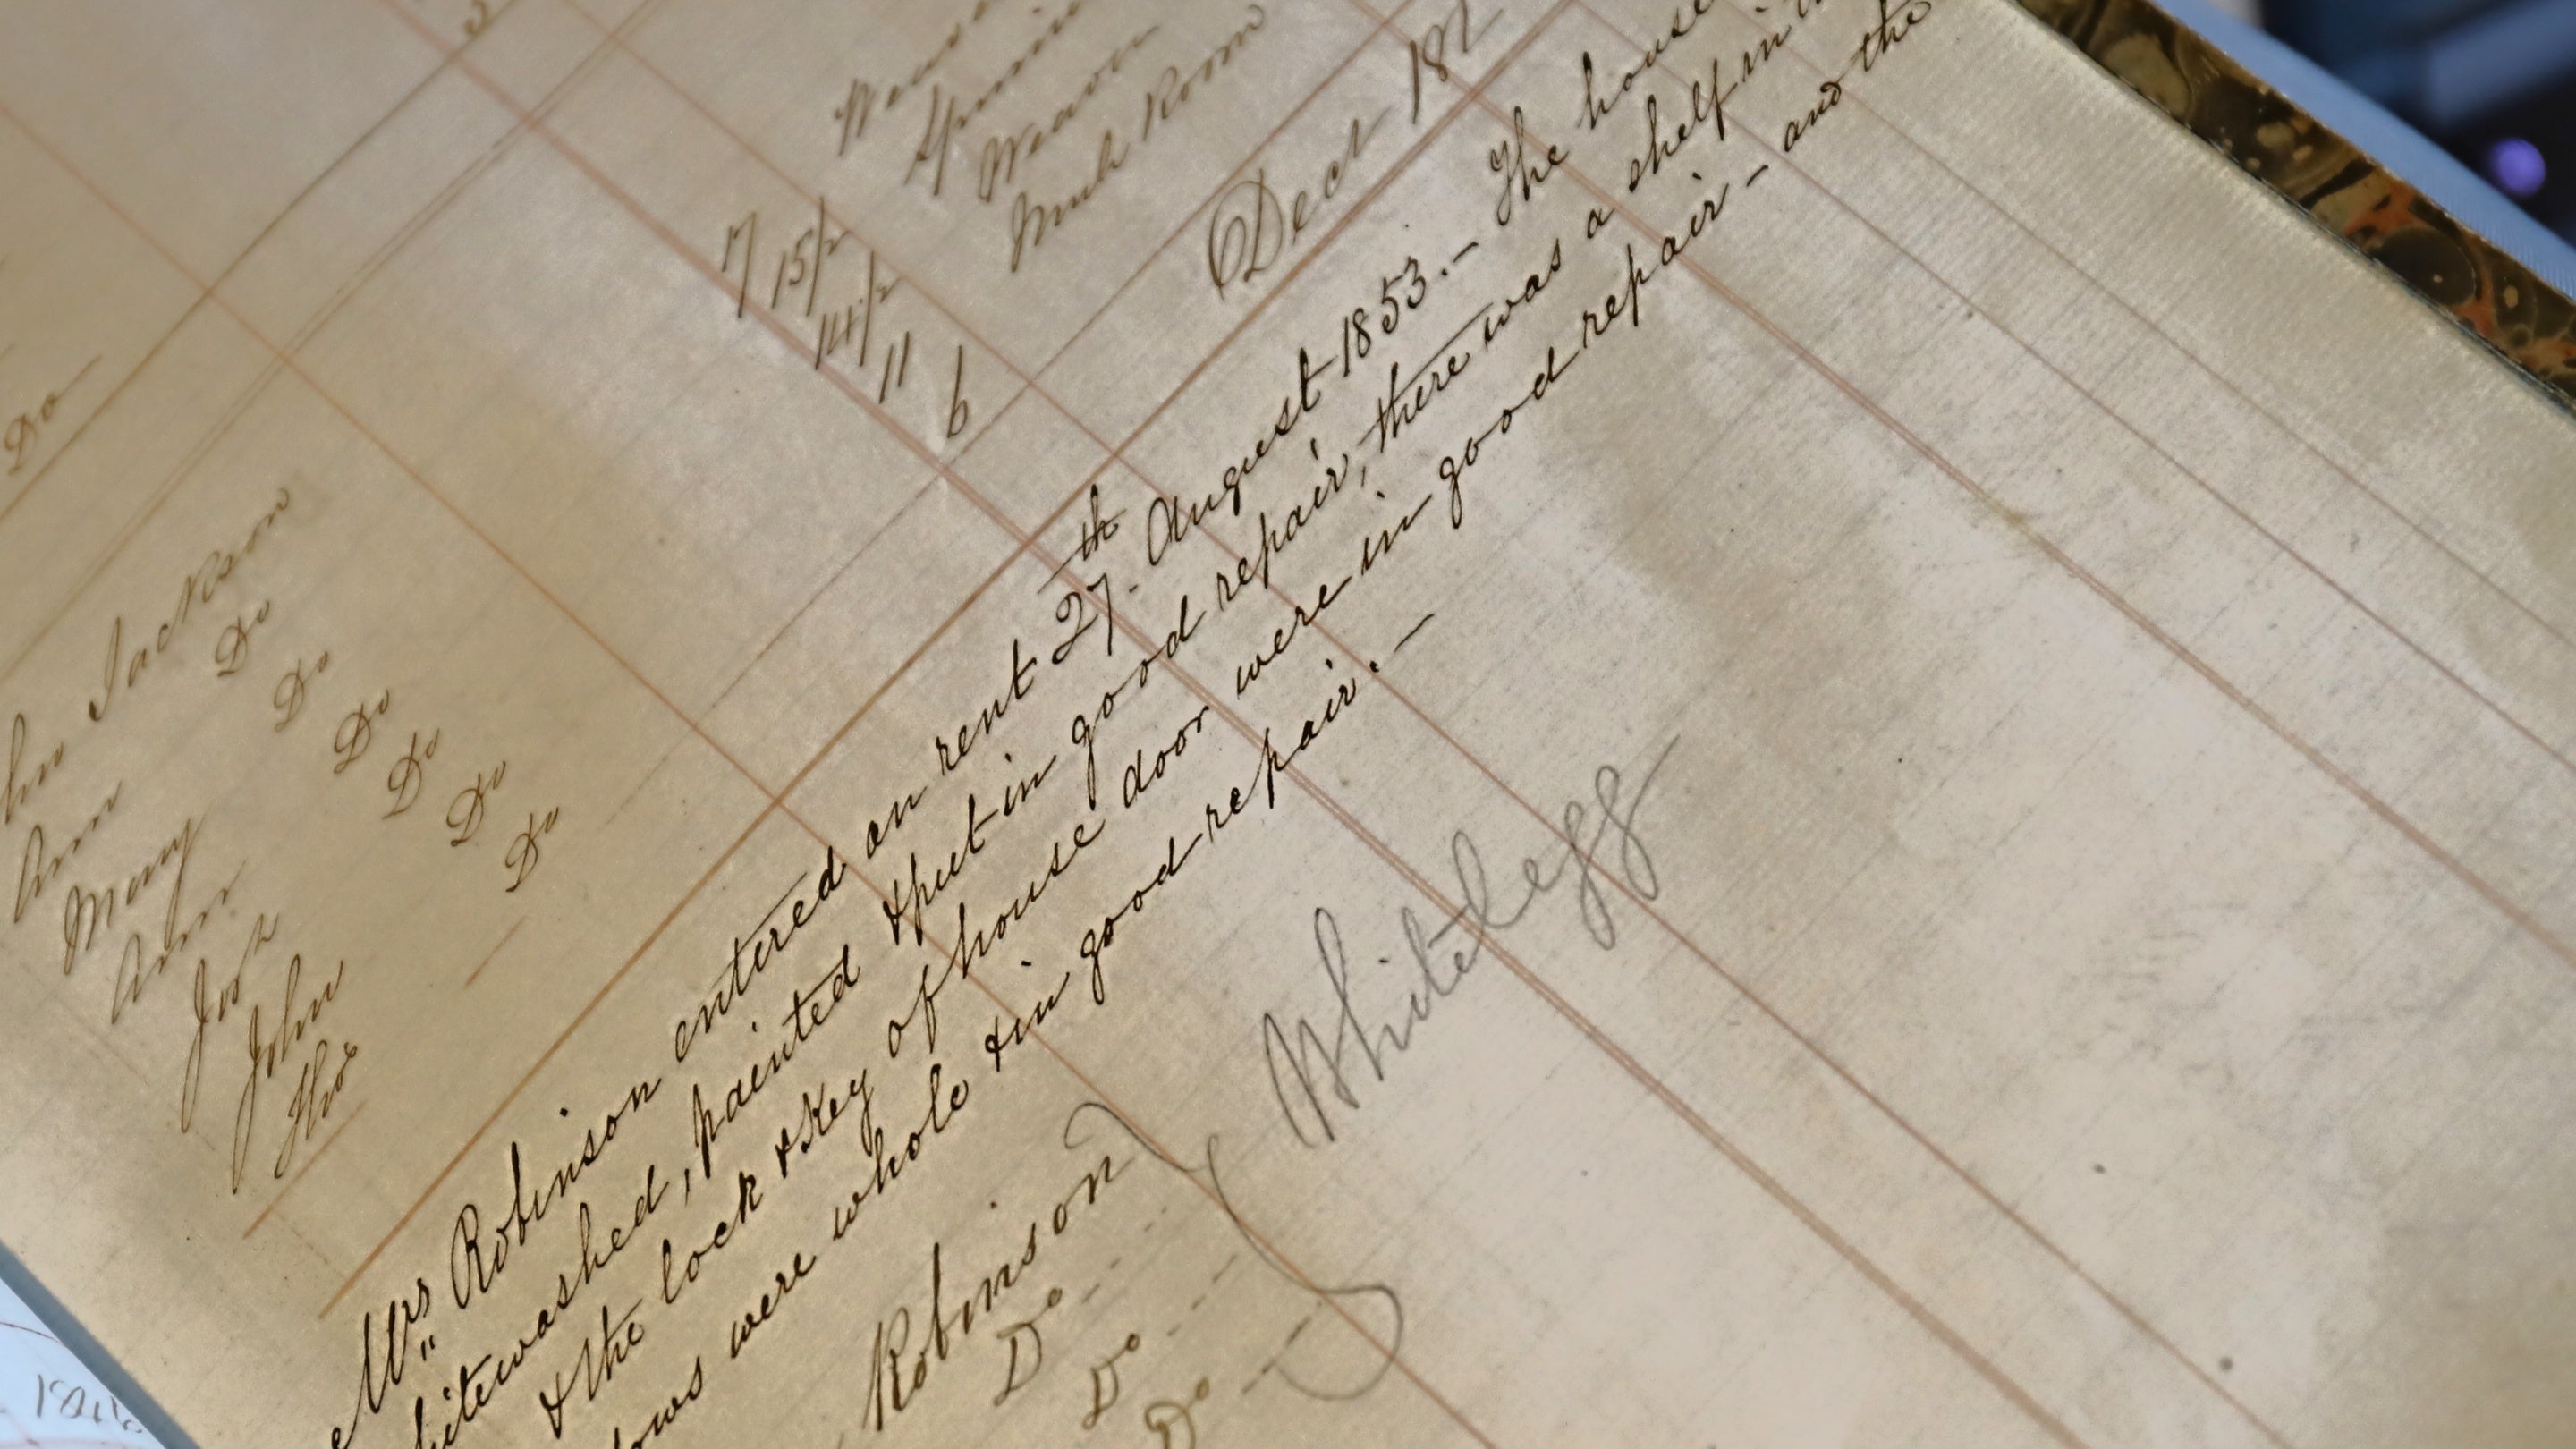 Do
Weaver
Muh Room
17
15/2
14/2
11
6
Jackson
Ann Do
Mary Do
Ann Do
Josh Do
John Do
Thos Do
Decr 18
Mrs Robinson entered on rent 27th August 1853.- The house
whitewashed, painted & put in good repair, there was a shelf in
& the lock & key of house door were in good repair - and the
were whole & in good repair.-
Robinson
Do
Do
Do
Whitelegg